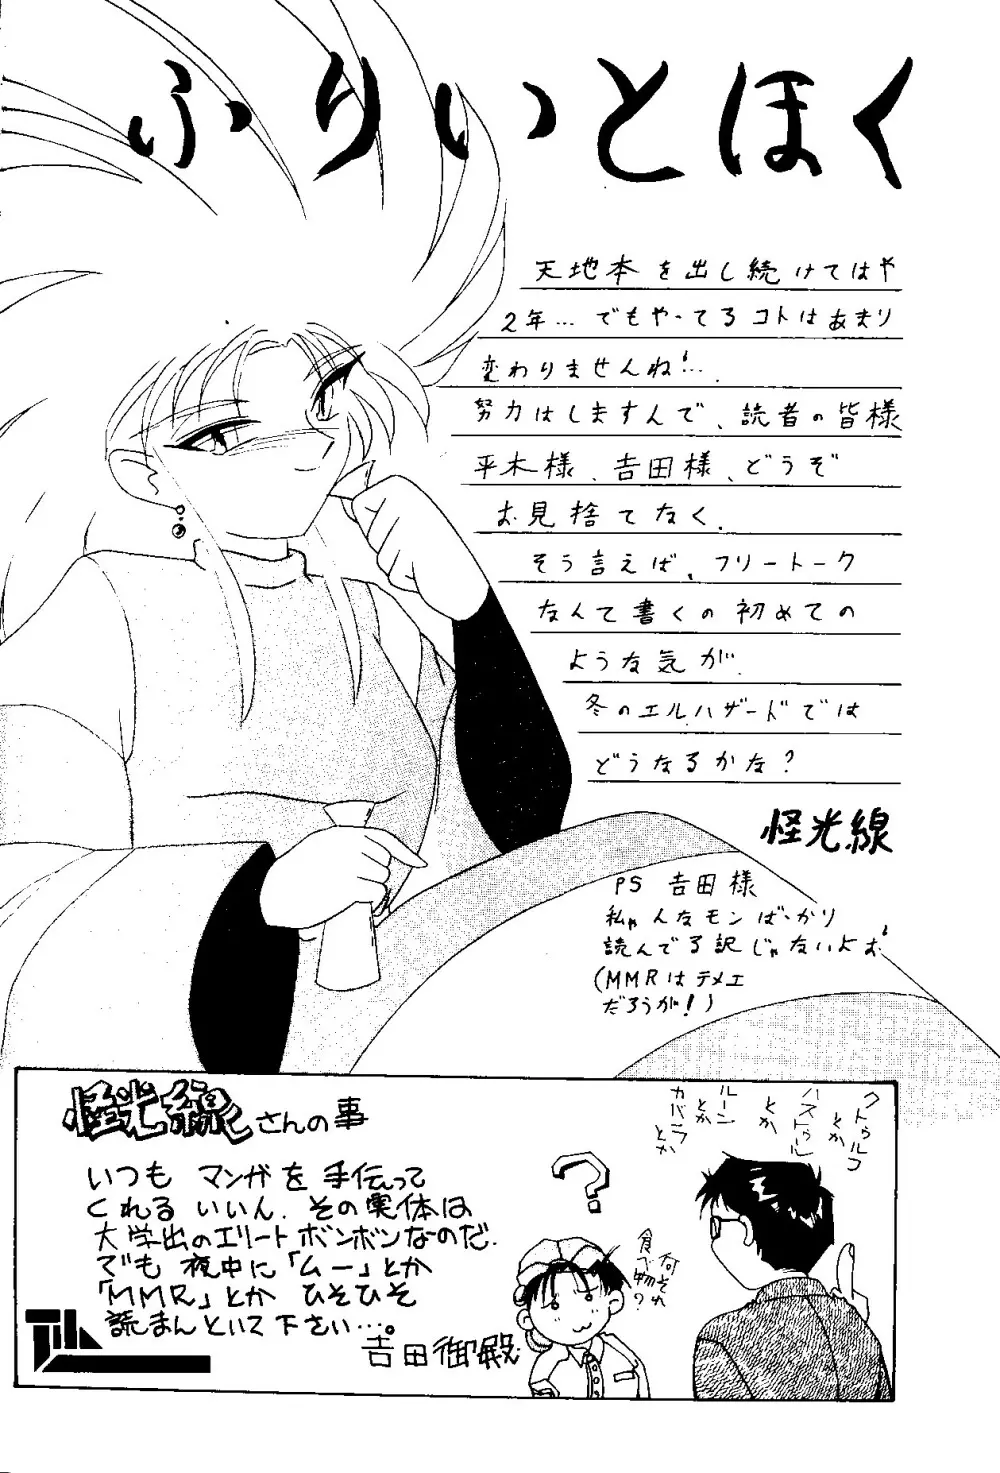 ふりいとほく
天地本を出し続けてはや
2年… でもやってるコトはあまり
変わりませんね!…
努力はしますんで、読者の皆様
平木様、吉田様、どうぞ
お見捨てなく.
そう言えば、フリートーク
なんて書くの初めての
ような気が.
冬のエルハザードでは
どうなるかな?
怪光線
PS 吉田様
私ゃんなモンばっかり
読んでる訳じゃないよお!
(MMRはテメエ
だろうが!)
怪光線さんの事
いつも マンガを手伝って
くれる いい人. その実体は
大学出のエリートボンボンなのだ.
でも 夜中に「ムー」とか
「MMR」とか ひそひそ
読まんといて下さい…。
吉田御殿
?
何それ
食べ物?
クトゥルフ
とか
ハストゥール
とか
ルーン
とか
カバラ
とか